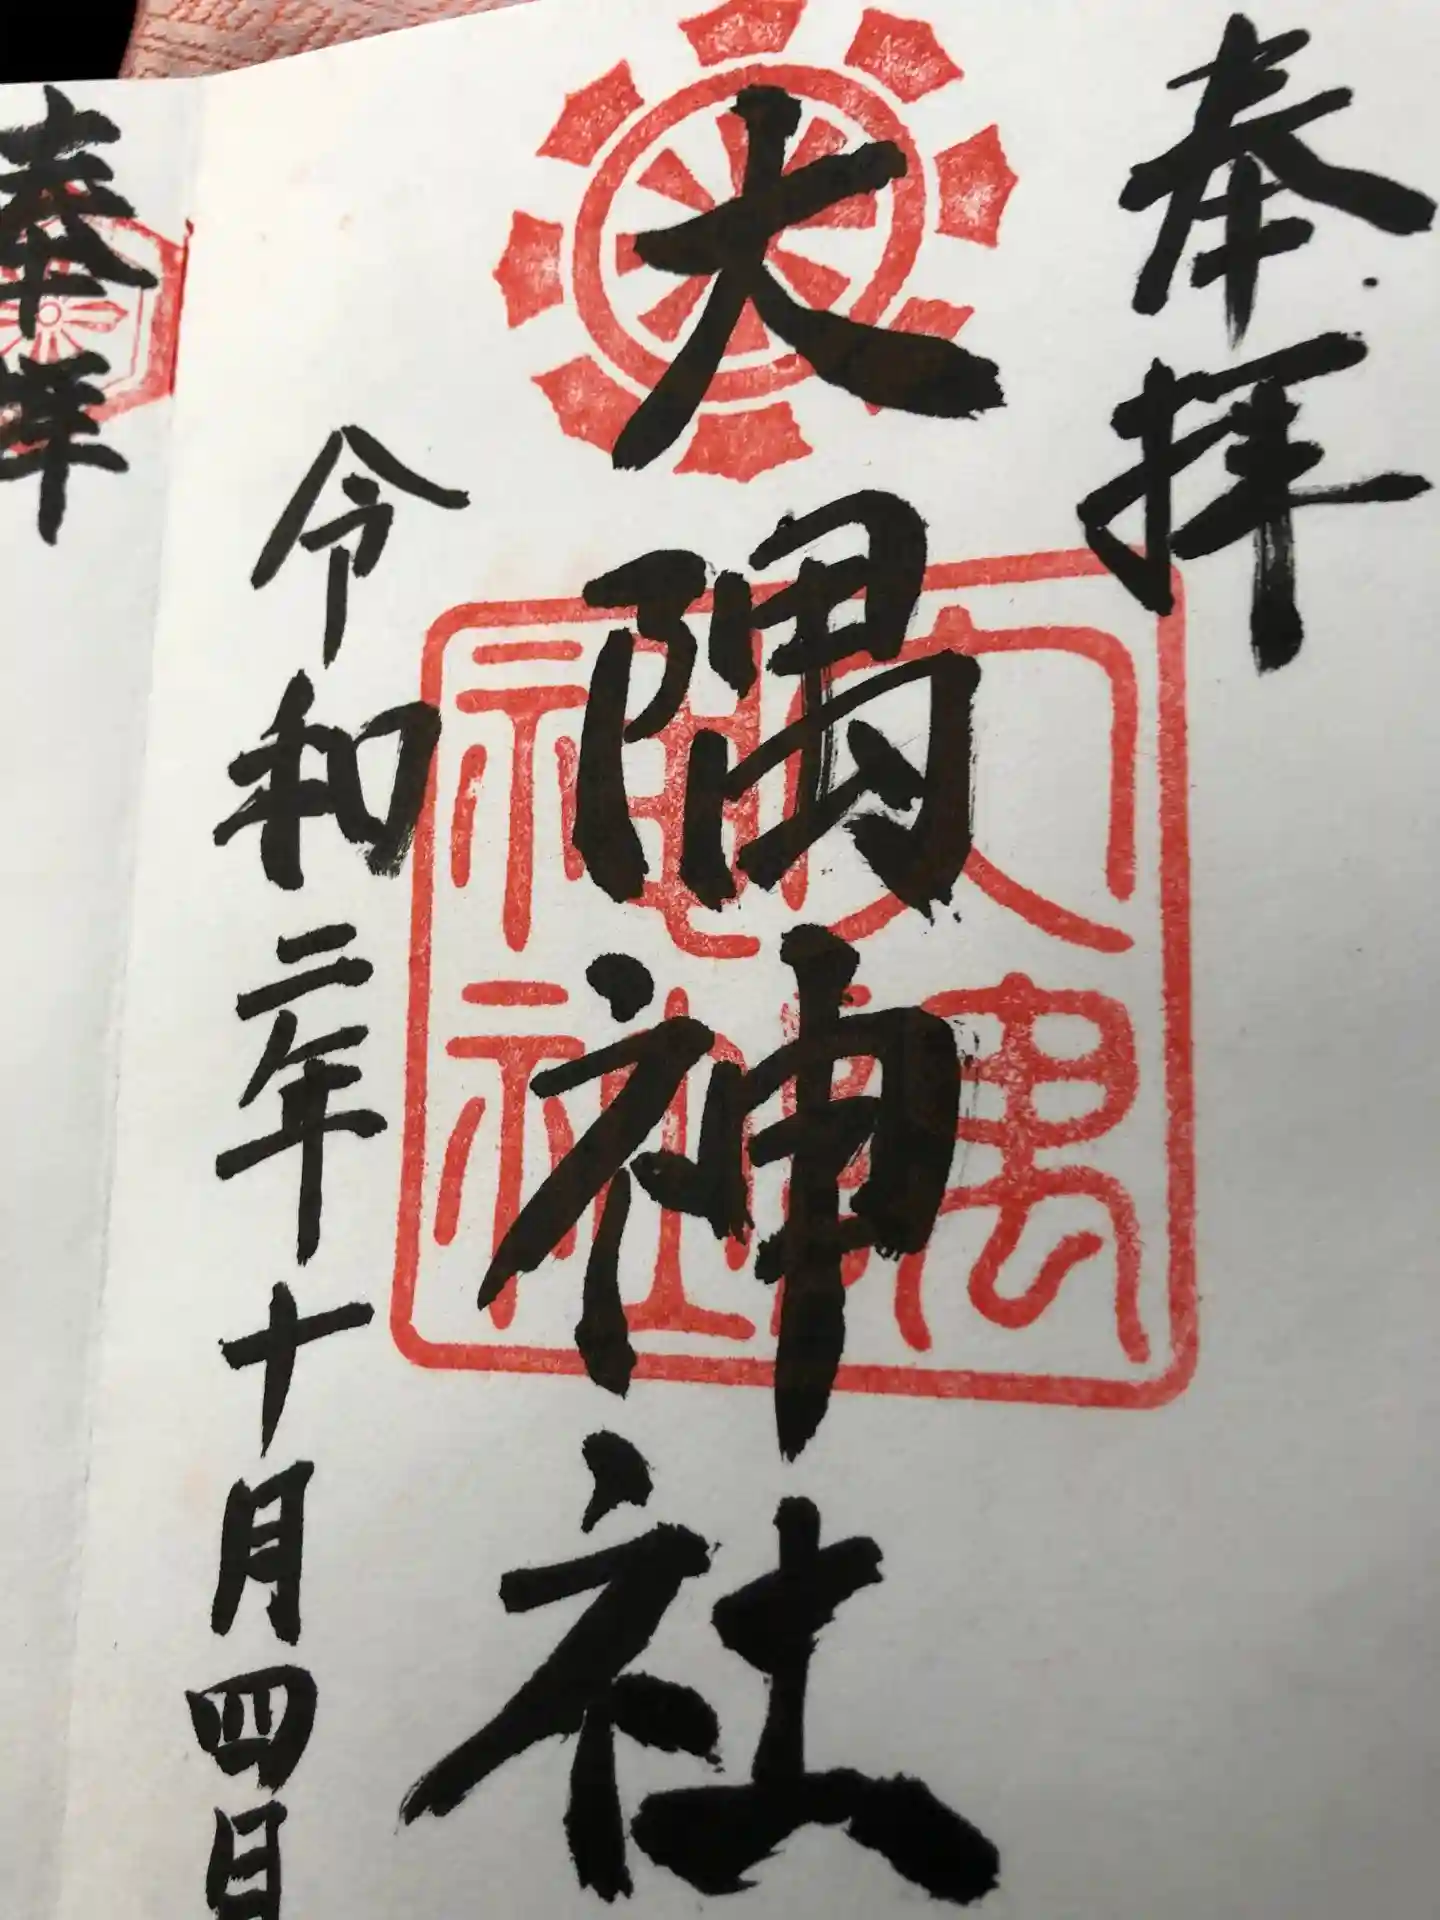 奉拝
大隅神社
令和二年十月四日
奉拝
大隅神社